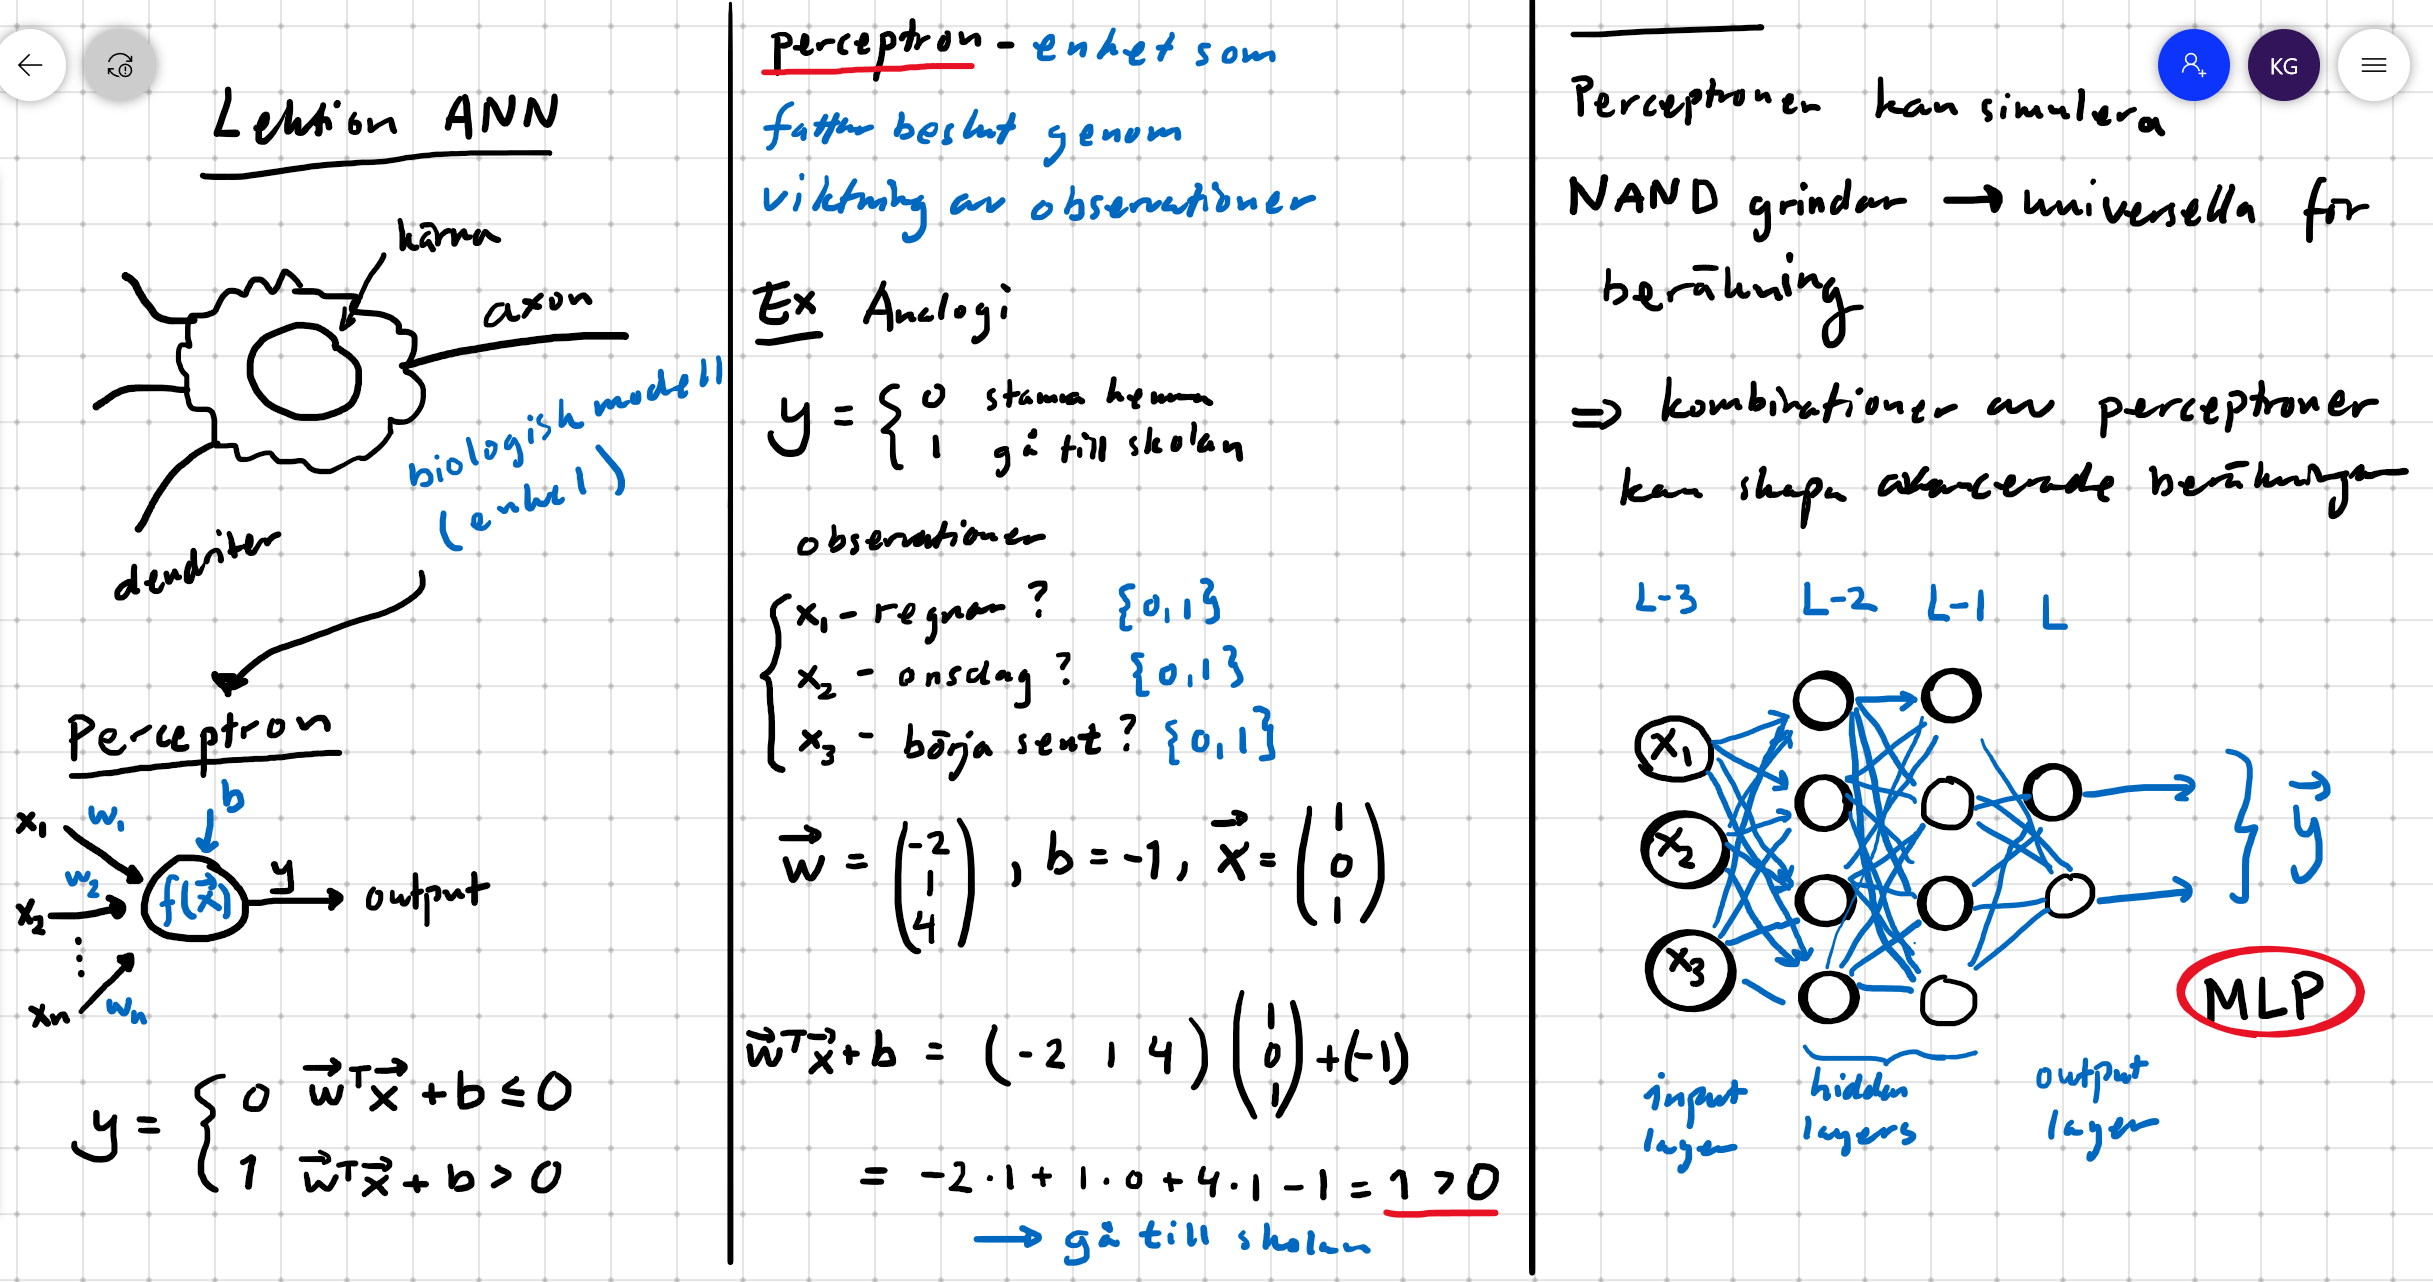 Lektion ANN
kärna
axon
biologisk modell
(enkel)
dendriter
Perceptron
b
x₁ w₁
x₂ w₂
f(x⃗)
y
output
⋮
xₙ wₙ
y = { 0 w⃗ᵀx⃗ + b ≤ 0
1 w⃗ᵀx⃗ + b > 0
perceptron - enhet som
fattar beslut genom
viktning av observationer
Ex Analogi
y = { 0 stanna hemma
1 gå till skolan
observationer
x₁ - regnar? {0,1}
x₂ - onsdag? {0,1}
x₃ - börja sent? {0,1}
w⃗ = (-2 1 4), b = -1, x⃗ = (1 0 1)
w⃗ᵀx⃗ + b = (-2 1 4) (1 0 1) + (-1)
= -2·1 + 1·0 + 4·1 - 1 = 1 > 0
→ gå till skolan
KG
Perceptroner kan simulera
NAND grindar → universella för
beräkning
⇒ kombinationer av perceptroner
kan skapa avancerade beräkningar
L-3 L-2 L-1 L
x₁
x₂
x₃
y⃗
MLP
input
layer
hidden
layers
output
layer